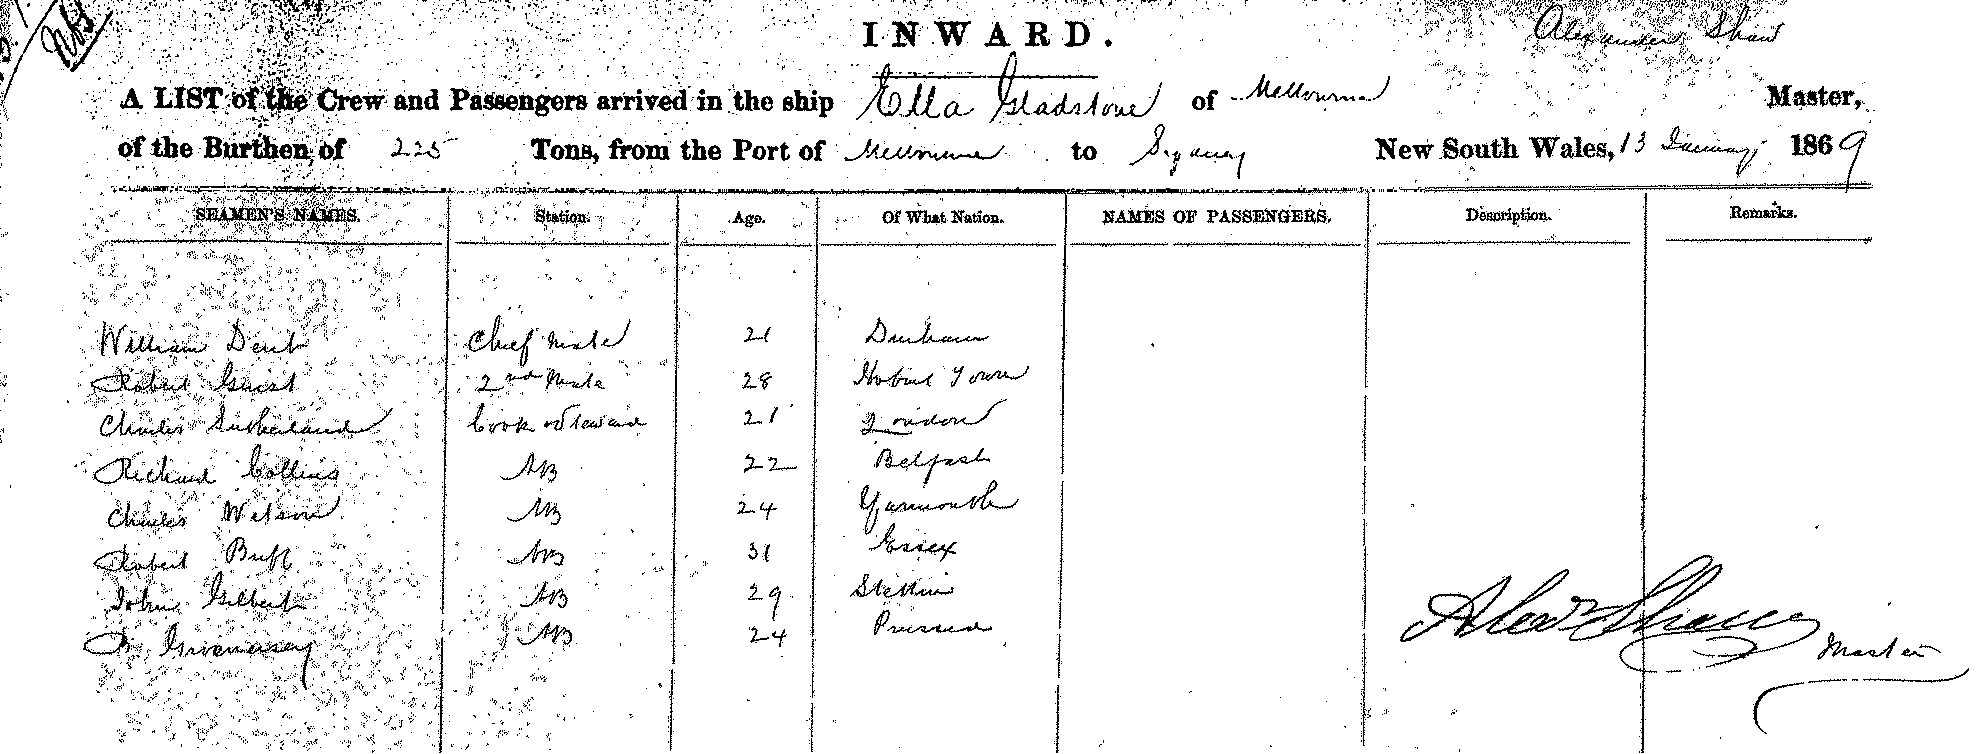 INWARD.
Alexander Shaw
A LIST of the Crew and Passengers arrived in the ship Ella Gladstone of Melbourne Master,
of the Burthen of 225 Tons, from the Port of Melbourne to Sydney New South Wales, 13 January 1869
SEAMEN'S NAMES. Station. Age. Of What Nation. NAMES OF PASSENGERS. Description. Remarks.
William Dent Chief Mate 21 Durham
Robert 2nd Mate 28 Hobart Town
Charles Sutherland Cook & Steward 21 London
Richard Collins AB 22 Belfast
Charles Watson AB 24 Yarmouth
Robert Buff AB 31 Essex
John Gilbert AB 29 Stettin
AB 24 Prussia
Alexr Shaw
Master